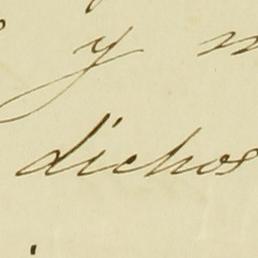 y
dichos